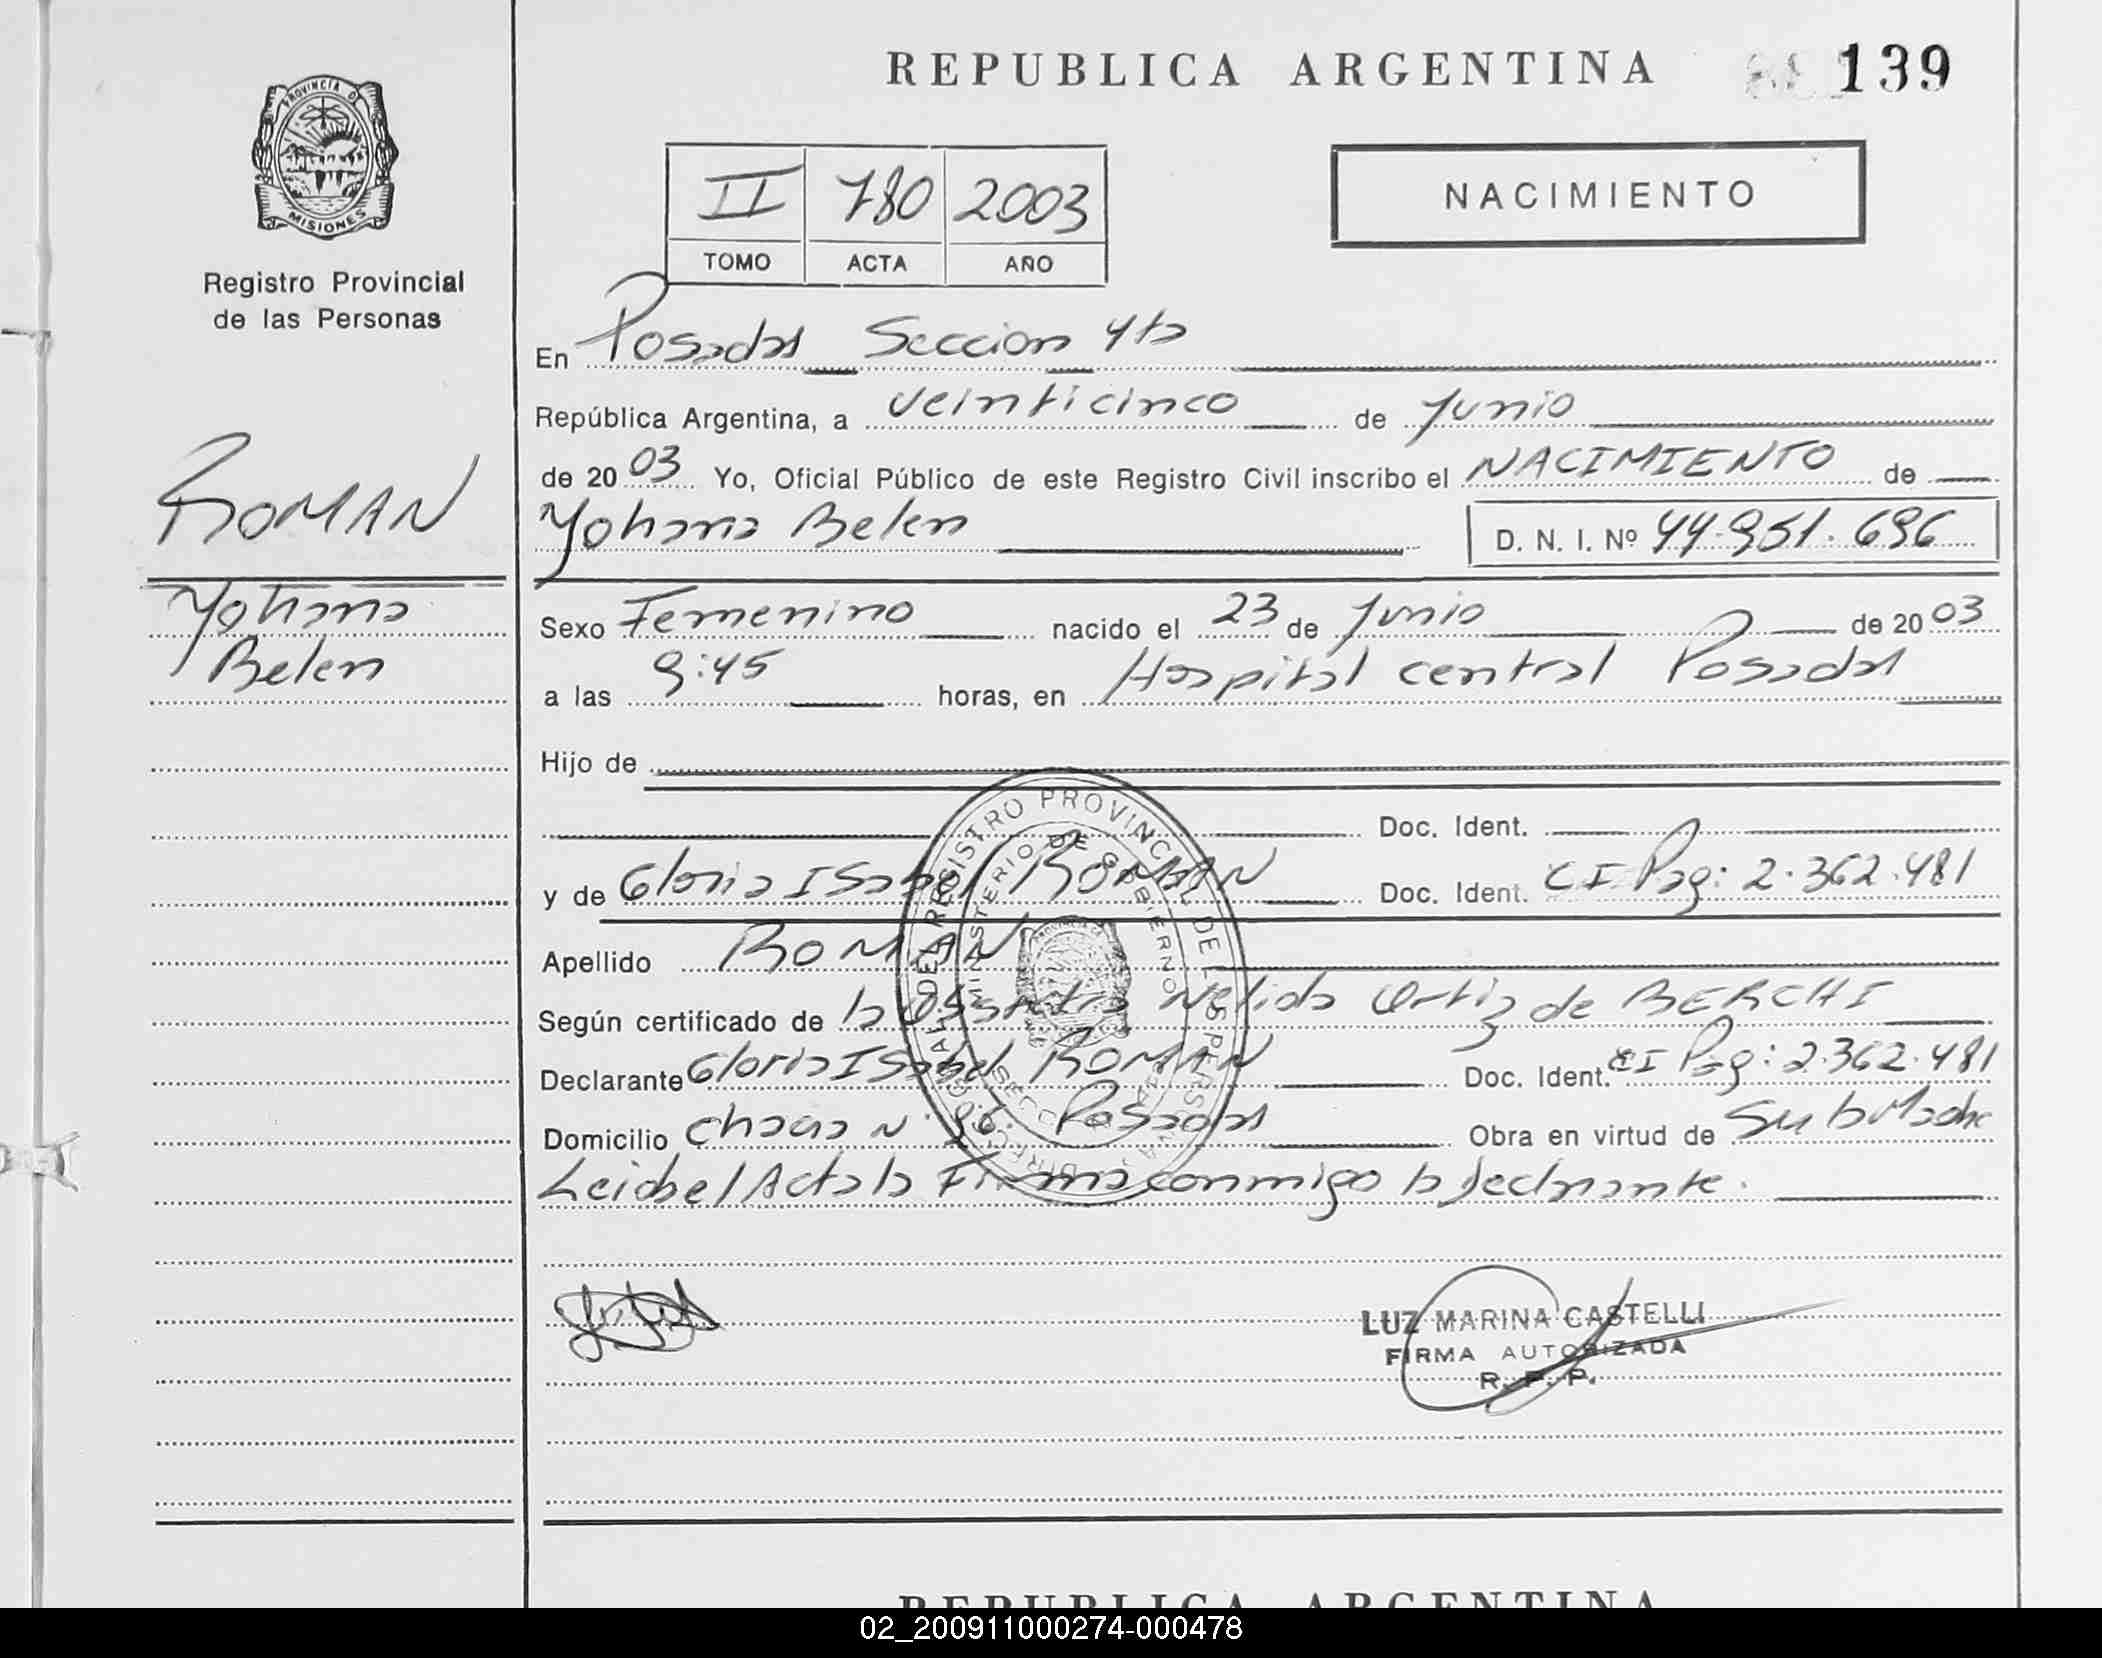 REPUBLICA ARGENTINA
139
PROVINCIA DE
MISIONES
Registro Provincial
de las Personas
II 780 2003
TOMO ACTA AÑO
NACIMIENTO
En Posadas Seccion 4ta
República Argentina, a veinticinco de Junio
de 2003 Yo, Oficial Público de este Registro Civil inscribo el NACIMIENTO de
Yohana Belen D. N. I. Nº 44.951.696
ROMAN
Yohana
Belen
Sexo Femenino nacido el 23 de Junio de 2003
a las 9:45 horas, en Hospital central Posadas
Hijo de
Doc. Ident.
y de Gloria Isabel ROMAN Doc. Ident. CI Pag: 2.362.481
Apellido ROMAN
Según certificado de la Obstetra Nelida Ortiz de BERCHI
Declarante Gloria Isabel ROMAN Doc. Ident. CI Pag: 2.362.481
Domicilio chacra Nº 96. Posadas Obra en virtud de Ser la Madre
Leida el Acta la Firma conmigo la declarante.
REGISTRO PROVINCIAL DE LAS PERSONAS
MINISTERIO DE GOBIERNO
LUZ MARINA CASTELLI
FIRMA AUTORIZADA
R. P. P.
REPUBLICA ARGENTINA
02_200911000274-000478